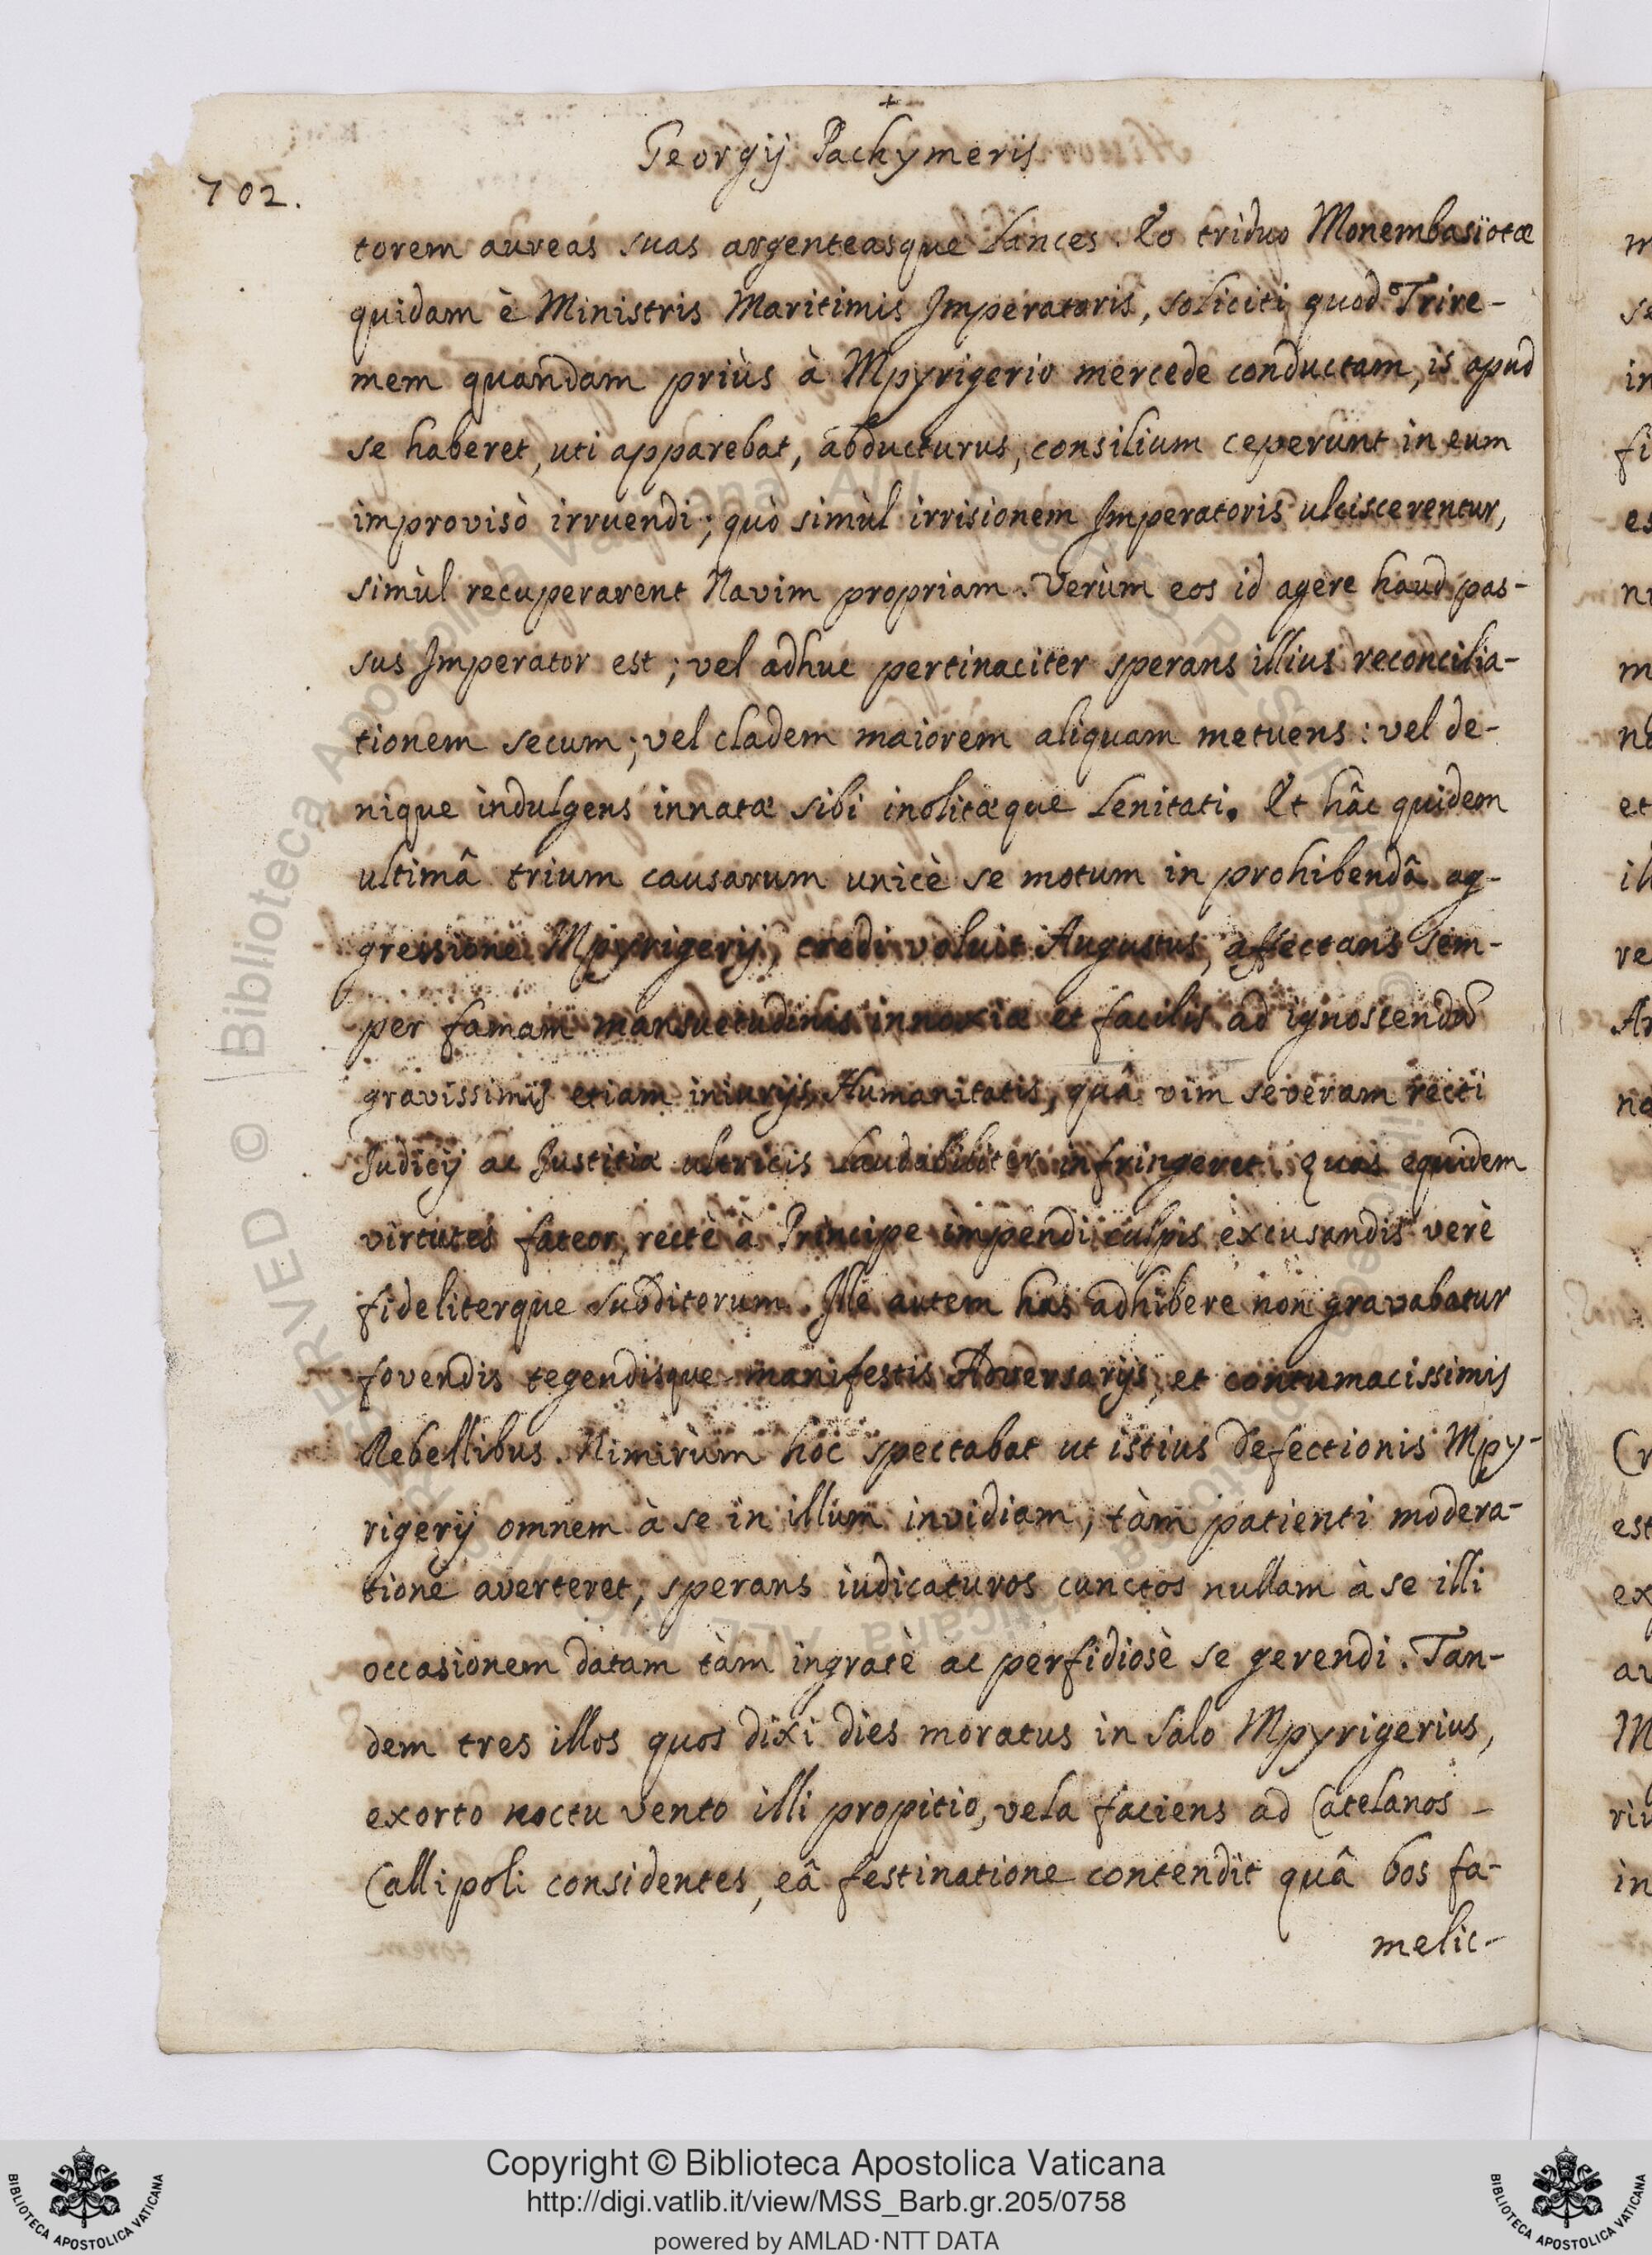 +
Georgij Pachymeris
702.
torem aureas suas argenteasque Lances. Eo triduo Monembasiotæ
quidam è Ministris Maritimis Imperatoris, soliciti quod Trire-
mem quandam priùs à Mpyrigerio mercede conductam, is apud
se haberet, uti apparebat, abducturus, consilium ceperunt in eum
improvisò irruendi; quò simùl irrisionem Imperatoris ulciscerentur,
simùl recuperarent Navim propriam. Verùm eos id agere haud pas-
sus Imperator est; vel adhuc pertinaciter sperans illius reconcilia-
tionem secum; vel cladem maiorem aliquam metuens: vel de-
nique indulgens innatæ sibi inolitæque Lenitati. Et hâc quidem
ultimâ trium causarum unicè se motum in prohibendâ ag-
gressione Mpyrigerij, credi voluit Augustus, affectans sem-
per famam mansuetudinis innoxiæ et facilis ad ignoscendũ
gravissimis etiam iniurijs Humanitatis, quâ vim severam recti
Judicij ac Justitiæ ultricis laudabiliter infringeret. Quas equidem
virtutes fateor, rectè à Principe impendi culpis excusandis verè
fideliterque subditorum. Ille autem has adhibere non gravabatur
fovendis tegendisque manifestis Adversarijs, et contumacissimis
Rebellibus. Nimirùm hoc spectabat ut istius defectionis Mpy-
rigerij omnem à se in illum invidiam, tàm patienti modera-
tione averteret, sperans iudicaturos cunctos nullam à se illi
occasionem datam tàm ingratè ac perfidiosè se gerendi. Tan-
dem tres illos quos dixi dies moratus in salo Mpyrigerius,
exorto noctu vento illi propitio, vela faciens ad Catelanos
Callipoli considentes, eâ festinatione contendit quâ bos fa-
melic-
Copyright © Biblioteca Apostolica Vaticana
http://digi.vatlib.it/view/MSS_Barb.gr.205/0758
powered by AMLAD·NTT DATA
BIBLIOTECA APOSTOLICA VATICANA
BIBLIOTECA APOSTOLICA VATICANA